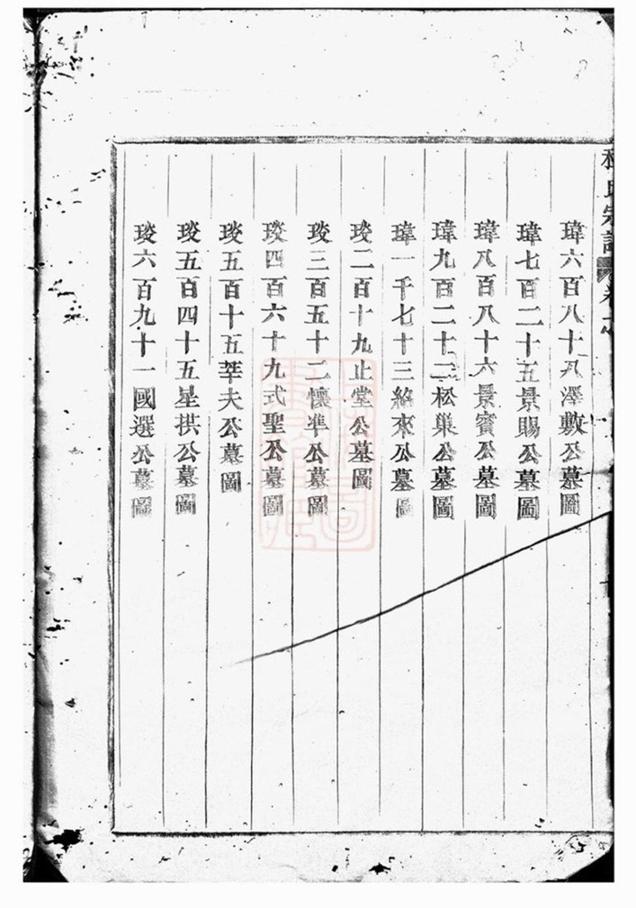 氏宗譜 卷
瑋六百八十八澤敷公墓圖
瑋七百二十五景賜公墓圖
瑋八百八十六景賓公墓圖
瑋九百二十二松巢公墓圖
瑋一千七十三絡來公墓圖
琰二百十九止堂公墓圖
琰三百五十二懷準公墓圖
琰四百六十九式聖公墓圖
琰五百十五莘夫公墓圖
琰五百四十五星拱公墓圖
琰六百九十一國選公墓圖